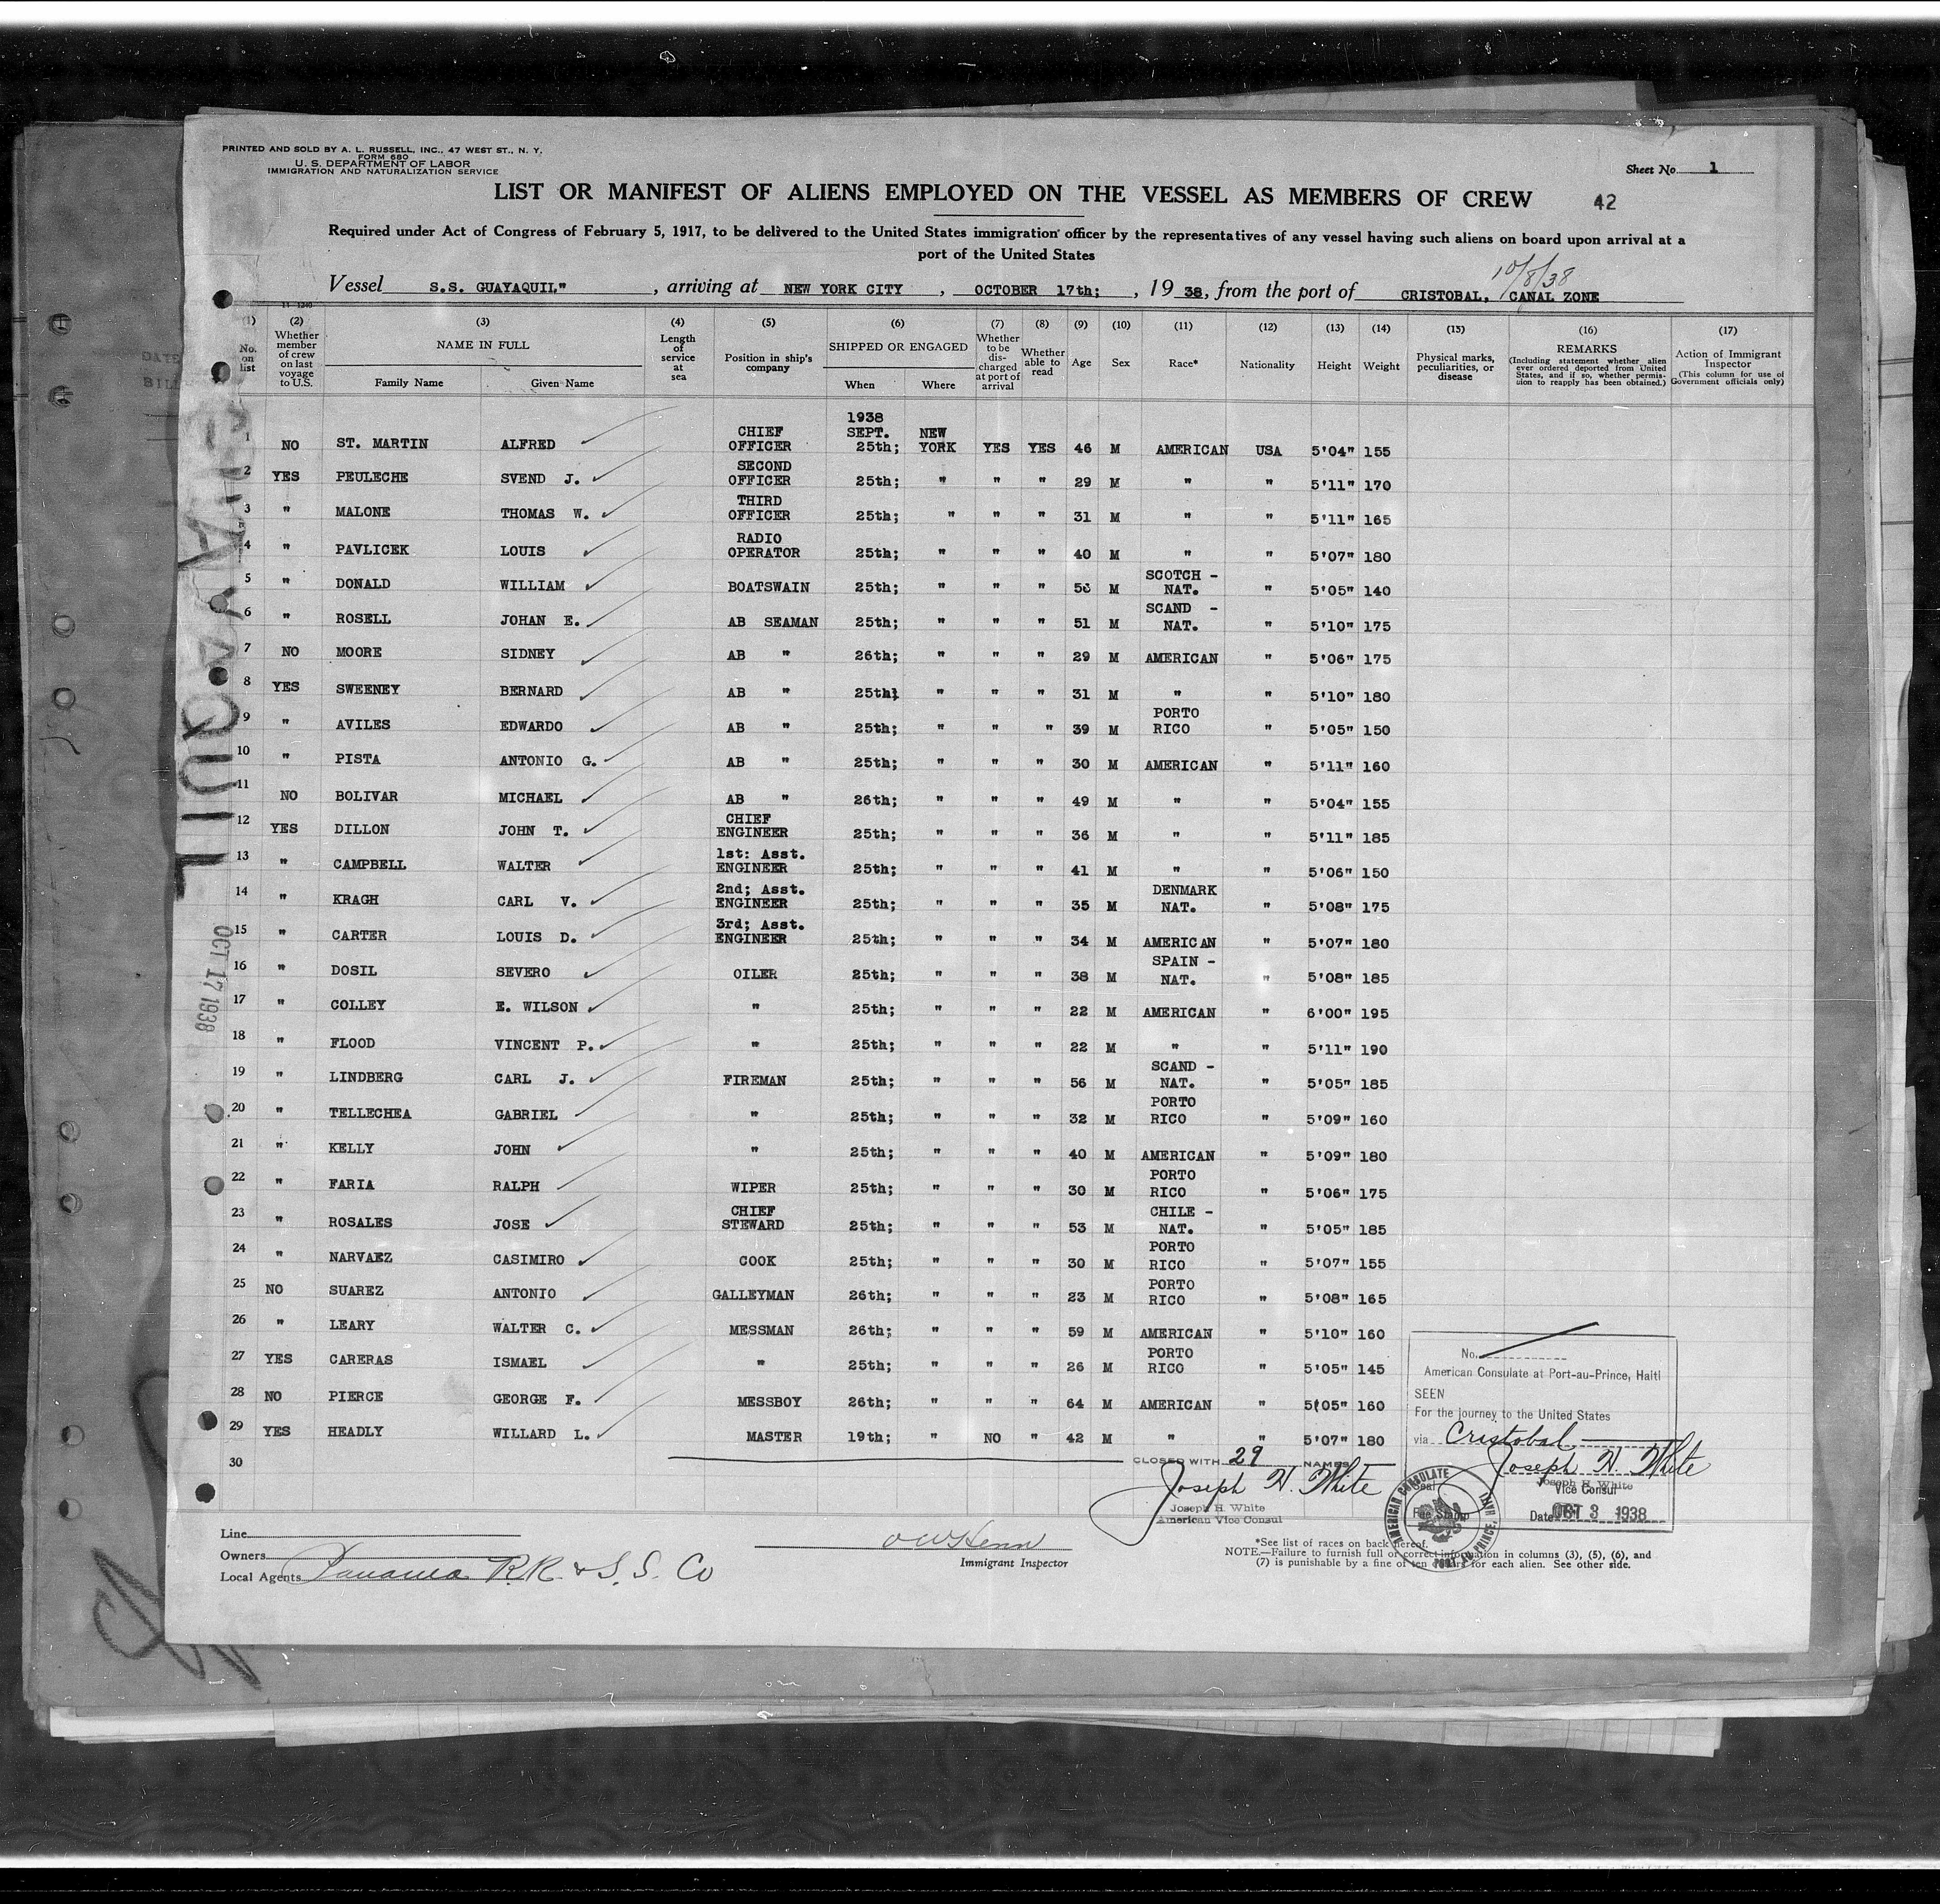 PRINTED AND SOLD BY A. L. RUSSELL, INC., 47 WEST ST., N. Y.
FORM 680
U. S. DEPARTMENT OF LABOR
IMMIGRATION AND NATURALIZATION SERVICE
Sheet No. 1
LIST OR MANIFEST OF ALIENS EMPLOYED ON THE VESSEL AS MEMBERS OF CREW 42
Required under Act of Congress of February 5, 1917, to be delivered to the United States immigration officer by the representatives of any vessel having such aliens on board upon arrival at a
port of the United States
10/8/38
Vessel S.S. GUAYAQUIL" , arriving at NEW YORK CITY , OCTOBER 17th; , 19 38, from the port of CRISTOBAL, CANAL ZONE
(1) No. on list
(2) Whether member of crew on last voyage to U.S.
(3) NAME IN FULL Family Name Given Name
(4) Length of service at sea
(5) Position in ship's company
(6) SHIPPED OR ENGAGED When Where
(7) Whether to be discharged at port of arrival
(8) Whether able to read
(9) Age
(10) Sex
(11) Race*
(12) Nationality
(13) Height
(14) Weight
(15) Physical marks, peculiarities, or disease
(16) REMARKS (Including statement whether alien ever ordered deported from United States, and if so, whether permission to reapply has been obtained.)
(17) Action of Immigrant Inspector (This column for use of Government officials only)
1 NO ST. MARTIN ALFRED CHIEF OFFICER 1938 SEPT. 25th; NEW YORK YES YES 46 M AMERICAN USA 5'04" 155
2 YES PEULECHE SVEND J. SECOND OFFICER 25th; " " " 29 M " " 5'11" 170
3 " MALONE THOMAS W. THIRD OFFICER 25th; " " " 31 M " " 5'11" 165
4 " PAVLICEK LOUIS RADIO OPERATOR 25th; " " " 40 M " " 5'07" 180
5 " DONALD WILLIAM BOATSWAIN 25th; " " " M SCOTCH - NAT. " 5'05" 140
6 " ROSELL JOHAN E. AB SEAMAN 25th; " " " 51 M SCAND - NAT. " 5'10" 175
7 NO MOORE SIDNEY AB " 26th; " " " 29 M AMERICAN " 5'06" 175
8 YES SWEENEY BERNARD AB " 25th; " " " 31 M " " 5'10" 180
9 " AVILES EDWARDO AB " 25th; " " " 39 M PORTO RICO " 5'05" 150
10 " PISTA ANTONIO G. AB " 25th; " " " 30 M AMERICAN " 5'11" 160
11 NO BOLIVAR MICHAEL AB " 26th; " " " 49 M " " 5'04" 155
12 YES DILLON JOHN T. CHIEF ENGINEER 25th; " " " 36 M " " 5'11" 185
13 " CAMPBELL WALTER 1st: Asst. ENGINEER 25th; " " " 41 M " " 5'06" 150
14 " KRAGH CARL V. 2nd; Asst. ENGINEER 25th; " " " 35 M DENMARK NAT. " 5'08" 175
15 " CARTER LOUIS D. 3rd; Asst. ENGINEER 25th; " " " 34 M AMERICAN " 5'07" 180
16 " DOSIL SEVERO OILER 25th; " " " 38 M SPAIN - NAT. " 5'08" 185
17 " COLLEY E. WILSON " 25th; " " " 22 M AMERICAN " 6'00" 195
18 " FLOOD VINCENT P. " 25th; " " " 22 M " " 5'11" 190
19 " LINDBERG CARL J. FIREMAN 25th; " " " 56 M SCAND - NAT. " 5'05" 185
20 " TELLECHEA GABRIEL " 25th; " " " 32 M PORTO RICO " 5'09" 160
21 " KELLY JOHN " 25th; " " " 40 M AMERICAN " 5'09" 180
22 " FARIA RALPH WIPER 25th; " " " 30 M PORTO RICO " 5'06" 175
23 " ROSALES JOSE CHIEF STEWARD 25th; " " " 53 M CHILE - NAT. " 5'05" 185
24 " NARVAEZ CASIMIRO COOK 25th; " " " 30 M PORTO RICO " 5'07" 155
25 NO SUAREZ ANTONIO GALLEYMAN 26th; " " " 23 M PORTO RICO " 5'08" 165
26 " LEARY WALTER C. MESSMAN 26th; " " " 59 M AMERICAN " 5'10" 160
27 YES CARERAS ISMAEL " 25th; " " " 26 M PORTO RICO " 5'05" 145
28 NO PIERCE GEORGE F. MESSBOY 26th; " " " 64 M AMERICAN " 5'05" 160
29 YES HEADLY WILLARD L. MASTER 19th; " NO " 42 M " " 5'07" 180
30
CLOSED WITH 29 NAMES
Joseph H. White
Joseph H. White
American Vice Consul
No.
American Consulate at Port-au-Prince, Haiti
SEEN
For the journey to the United States
via Cristobal
Joseph H. White
Joseph H. White
Vice Consul
Seal
Fee Stamp
Date OCT 3 1938
AMERICAN CONSULATE PORT-AU-PRINCE, HAITI
Line
Owners
Local Agents Panama R.R. & S.S. Co
Immigrant Inspector
*See list of races on back hereof.
NOTE.—Failure to furnish full or correct information in columns (3), (5), (6), and
(7) is punishable by a fine of ten dollars for each alien. See other side.
GUAYAQUIL
OCT 17 1938